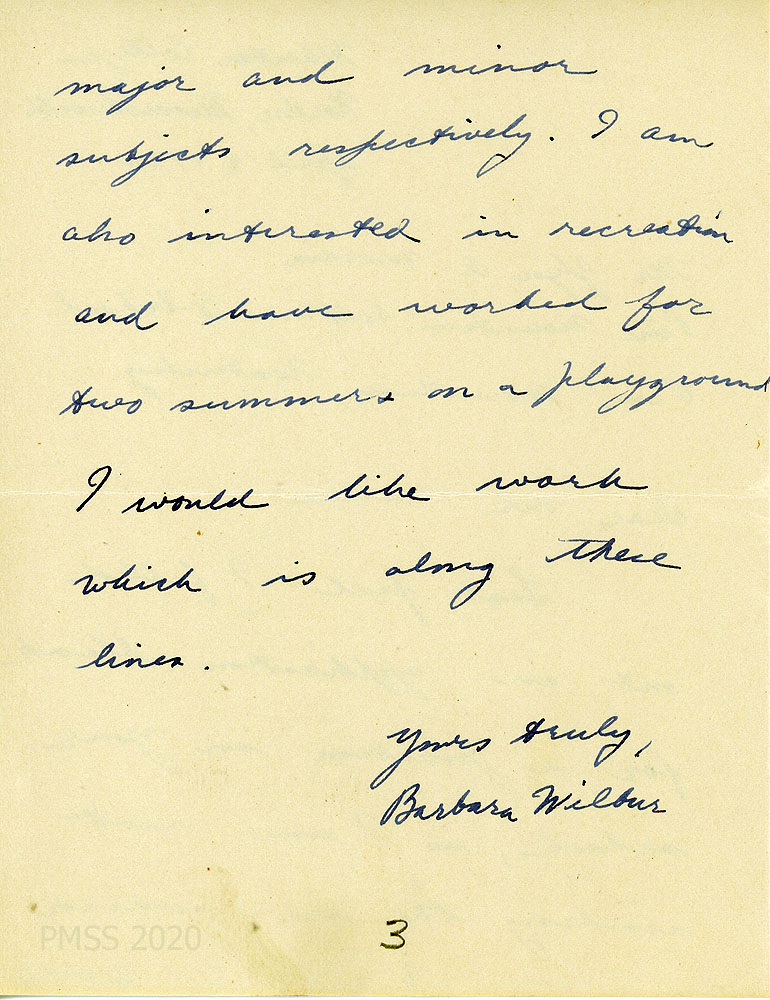 major and minor
subjects respectively. I am
also interested in recreation
and have worked for
two summers on a playground
I would like work
which is along these
lines.
Yours truly,
Barbara Wilbur
3
PMSS 2020